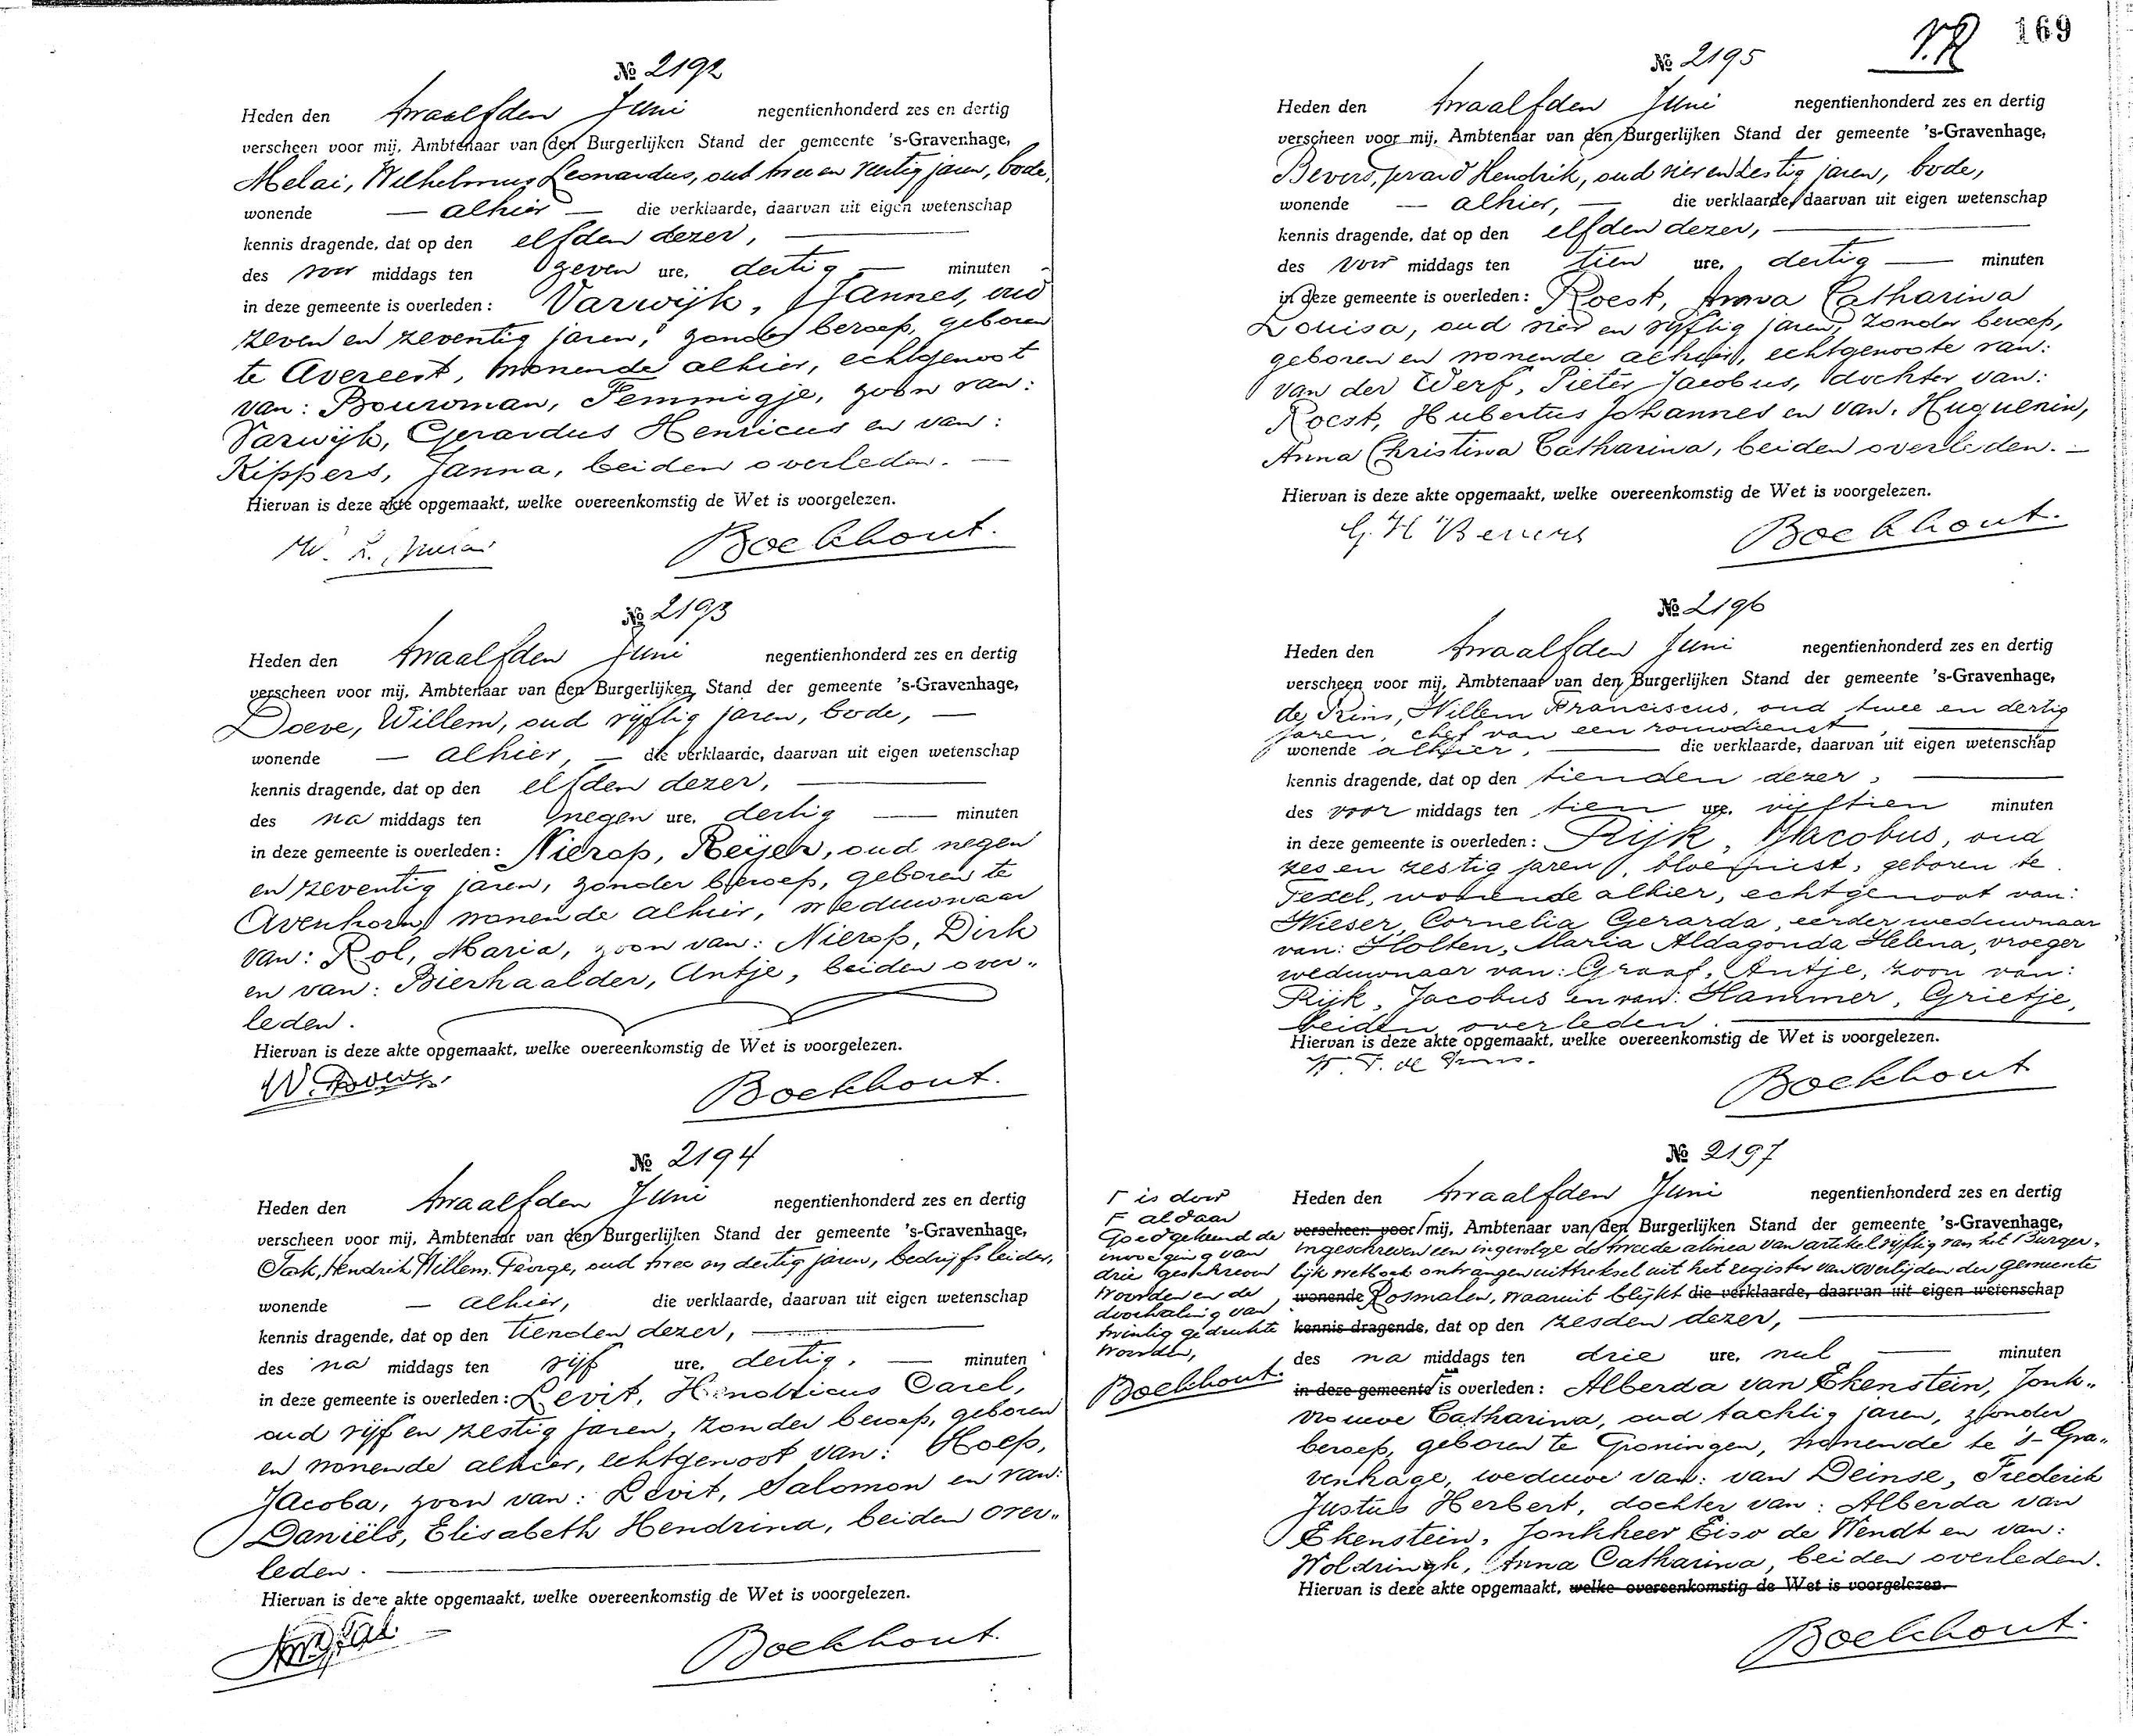 № 2192
Heden den twaalfden Juni negentienhonderd zes en dertig
verscheen voor mij, Ambtenaar van den Burgerlijken Stand der gemeente 's-Gravenhage,
Melai, Wilhelmus Leonardus, oud twee en veertig jaren, bode,
wonende — alhier — die verklaarde, daarvan uit eigen wetenschap
kennis dragende, dat op den elfden dezer,
des voor middags ten zeven ure, dertig — minuten
in deze gemeente is overleden: Varwijk, Jannes, oud
zeven en zeventig jaren, zonder beroep, geboren
te Avereest, wonende alhier, echtgenoot
van: Bouwman, Femmigje, zoon van:
Varwijk, Gerardus Henricus en van:
Kippers, Janna, beiden overleden. —
Hiervan is deze akte opgemaakt, welke overeenkomstig de Wet is voorgelezen.
W. L. Melai Boekhout.
№ 2193
Heden den twaalfden Juni negentienhonderd zes en dertig
verscheen voor mij, Ambtenaar van den Burgerlijken Stand der gemeente 's-Gravenhage,
Doeve, Willem, oud vijftig jaren, bode, —
wonende — alhier, — die verklaarde, daarvan uit eigen wetenschap
kennis dragende, dat op den elfden dezer,
des na middags ten negen ure, dertig — minuten
in deze gemeente is overleden: Nierop, Reijer, oud negen
en zeventig jaren, zonder beroep, geboren te
Avenhorn, wonende alhier, weduwnaar
van: Rol, Maria, zoon van: Nierop, Dirk
en van: Bierhaalder, Antje, beiden over-
leden.
Hiervan is deze akte opgemaakt, welke overeenkomstig de Wet is voorgelezen.
W. Doeve. Boekhout.
№ 2194
Heden den twaalfden Juni negentienhonderd zes en dertig
verscheen voor mij, Ambtenaar van den Burgerlijken Stand der gemeente 's-Gravenhage,
Tak, Hendrik Willem George, oud twee en dertig jaren, bedrijfsleider,
wonende — alhier, die verklaarde, daarvan uit eigen wetenschap
kennis dragende, dat op den tienden dezer,
des na middags ten vijf ure, dertig, — minuten
in deze gemeente is overleden: Levit, Hendricus Carel,
oud vijf en zestig jaren, zonder beroep, geboren
en wonende alhier, echtgenoot van: Hoep,
Jacoba, zoon van: Levit, Salomon en van:
Daniëls, Elisabeth Hendrina, beiden over-
leden.
Hiervan is deze akte opgemaakt, welke overeenkomstig de Wet is voorgelezen.
Boekhout.
169
№ 2195
Heden den twaalfden Juni negentienhonderd zes en dertig
verscheen voor mij, Ambtenaar van den Burgerlijken Stand der gemeente 's-Gravenhage,
Bevers, Gerard Hendrik, oud vier en zestig jaren, bode,
wonende — alhier, — die verklaarde, daarvan uit eigen wetenschap
kennis dragende, dat op den elfden dezer,
des voor middags ten tien ure, dertig — minuten
in deze gemeente is overleden: Roest, Anna Catharina
Louisa, oud vier en vijftig jaren, zonder beroep,
geboren en wonende alhier, echtgenoote van:
van der Werf, Pieter Jacobus, dochter van:
Roest, Hubertus Johannes en van: Huguenin,
Anna Christina Catharina, beiden overleden. —
Hiervan is deze akte opgemaakt, welke overeenkomstig de Wet is voorgelezen.
G. H Bevers Boekhout.
№ 2196
Heden den twaalfden Juni negentienhonderd zes en dertig
verscheen voor mij, Ambtenaar van den Burgerlijken Stand der gemeente 's-Gravenhage,
de Prins, Willem Franciscus, oud twee en dertig
jaren, chef van een rouwdienst,
wonende alhier, die verklaarde, daarvan uit eigen wetenschap
kennis dragende, dat op den tienden dezer,
des voor middags ten tien ure, vijftien minuten
in deze gemeente is overleden: Rijk, Jacobus, oud
zes en zestig jaren, bloemist, geboren te
Texel, wonende alhier, echtgenoot van:
Wieser, Cornelia Gerarda, eerder weduwnaar
van: Holten, Maria Aldagonda Helena, vroeger
weduwnaar van: Graaf, Antje, zoon van:
Rijk, Jacobus en van: Hammer, Grietje,
beiden overleden.
Hiervan is deze akte opgemaakt, welke overeenkomstig de Wet is voorgelezen.
W. F. de Prins. Boekhout
№ 2197
Heden den twaalfden Juni negentienhonderd zes en dertig
verscheen voor mij, Ambtenaar van den Burgerlijken Stand der gemeente 's-Gravenhage,
ingeschreven een ingevolge de tweede alinea van artikel vijftig van het Burger-
lijk wetboek ontvangen uittreksel uit het register van overlijden der gemeente
wonende Rosmalen, waaruit blijkt die verklaarde, daarvan uit eigen wetenschap
kennis dragende, dat op den zesden dezer,
des na middags ten drie ure, nul — minuten
in deze gemeente is overleden: Alberda van Ekenstein, Jonk-
vrouwe Catharina, oud tachtig jaren, zonder
beroep, geboren te Groningen, wonende te 's-Gra-
venhage, weduwe van: van Deinse, Frederik
Justus Herbert, dochter van: Alberda van
Ekenstein, Jonkheer Eiso de Wendt en van:
Woldringh, Anna Catharina, beiden overleden.
Hiervan is deze akte opgemaakt, welke overeenkomstig de Wet is voorgelezen.
Boekhout.
Γ is door
F aldaar
Goedgekeurd de
invoeging van
drie geschreven
woorden en de
doorhaling van
twintig gedrukte
woorden,
Boekhout.